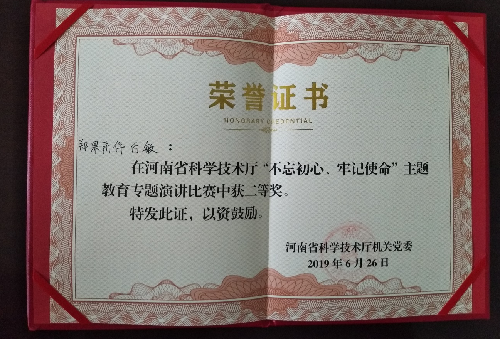 荣誉证书
HONORARY CREDENTIAL
：
在河南省科学技术厅“不忘初心、牢记使命”主题
教育专题演讲比赛中获二等奖。
特发此证，以资鼓励。
河南省科学技术厅机关党委
2019年6月26日